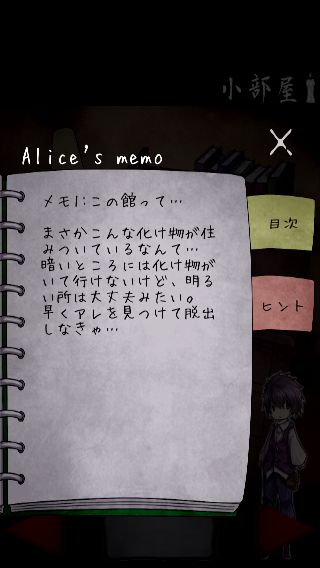 小部屋
Alice's memo
メモ1:この館って…
まさかこんな化け物が住
みついているなんて…
暗いところには化け物が
いて行けないけど、明る
い所は大丈夫みたい。
早くアレを見つけて脱出
しなきゃ…
目次
ヒント